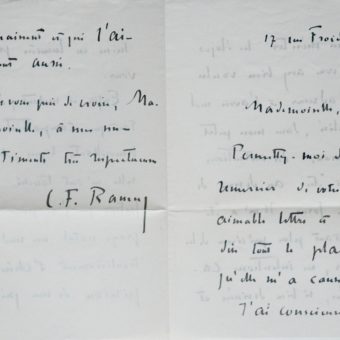 naiment et qui l'ai-
ent aussi.
vous prie de croire, Ma-
moiselle, à mes
sentiments très respectueux
C. F. Ramuz
17 rue Froid
Mademoiselle,
Permettez-moi d
remercier de votre
aimable lettre
dire tout le plai
qu'elle m'a caus
J'ai conscience